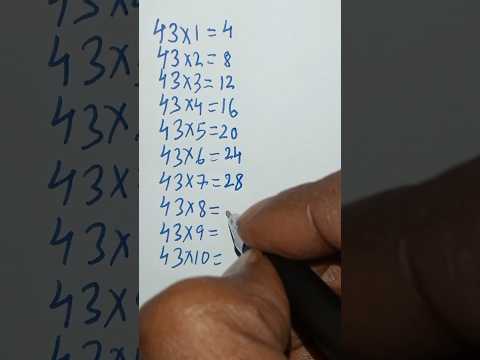 43×1=4
43×2=8
43×3=12
43×4=16
43×5=20
43×6=24
43×7=28
43×8=
43×9=
43×10=